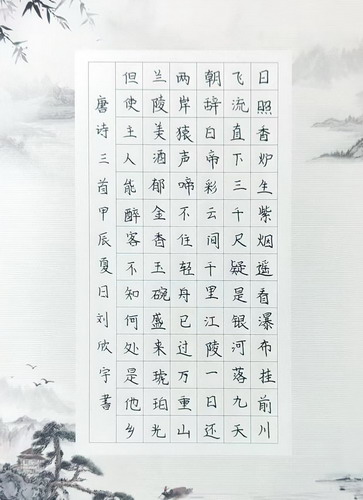 日照香炉生紫烟遥看瀑布挂前川
飞流直下三千尺疑是银河落九天
朝辞白帝彩云间千里江陵一日还
两岸猿声啼不住轻舟已过万重山
兰陵美酒郁金香玉碗盛来琥珀光
但使主人能醉客不知何处是他乡
唐诗三首甲辰夏日刘欣宇書